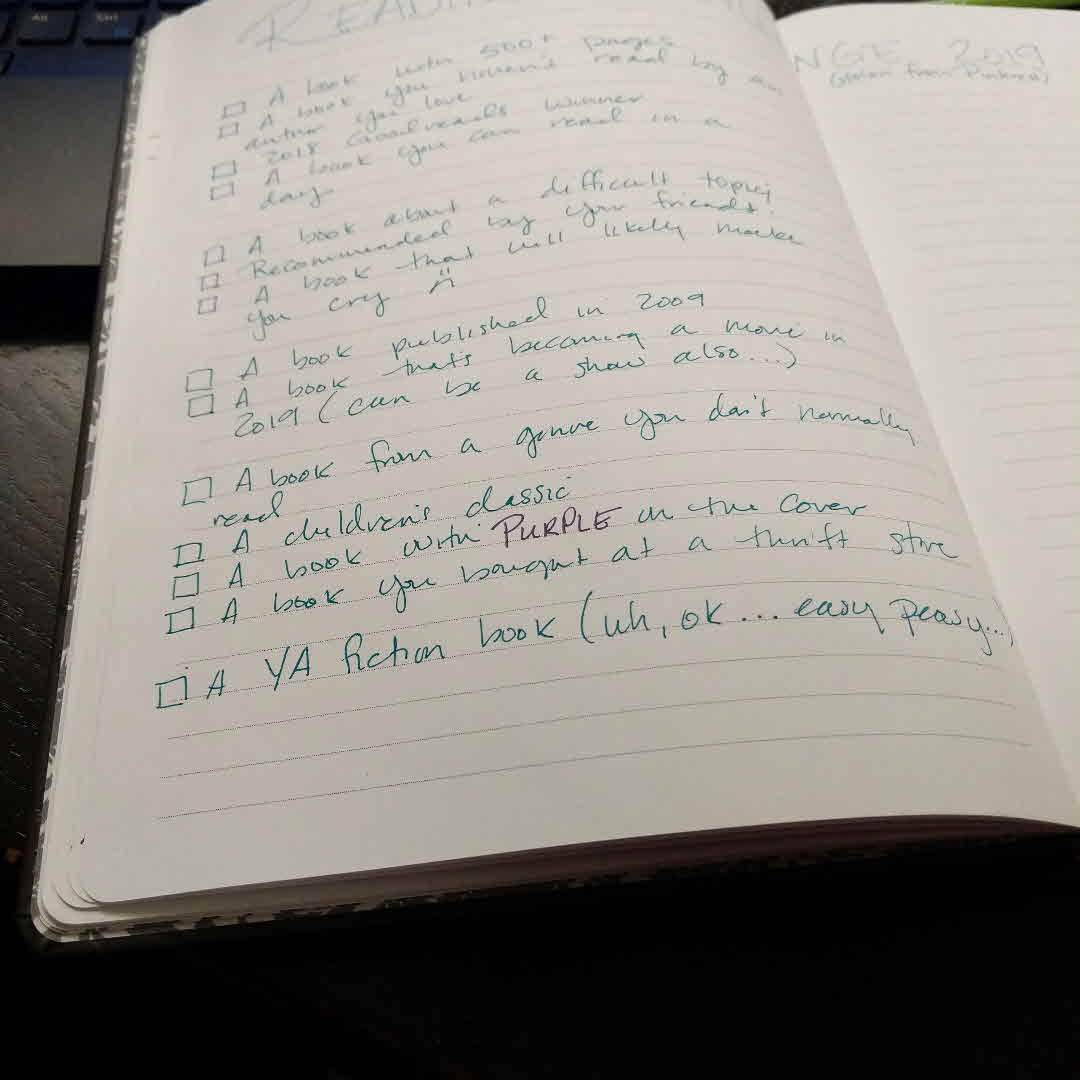 READI NGE 2019
(stolen from Pinterest)
□ A book with 500+ pages
□ A book you haven't read by an
author you love
□ 2018 Goodreads winner
□ A book you can read in a
day
□ A book about a difficult topic
□ Recommended by your friends.
□ A book that will likely make
you cry :(
□ A book published in 2009
□ A book that's becoming a movie in
2019 (can be a show also...)
□ A book from a genre you don't normally
read
□ A children's classic
□ A book with PURPLE on the cover
□ A book you bought at a thrift store
□ A YA fiction book (uh, ok... easy peasy...)
Alt Ctrl